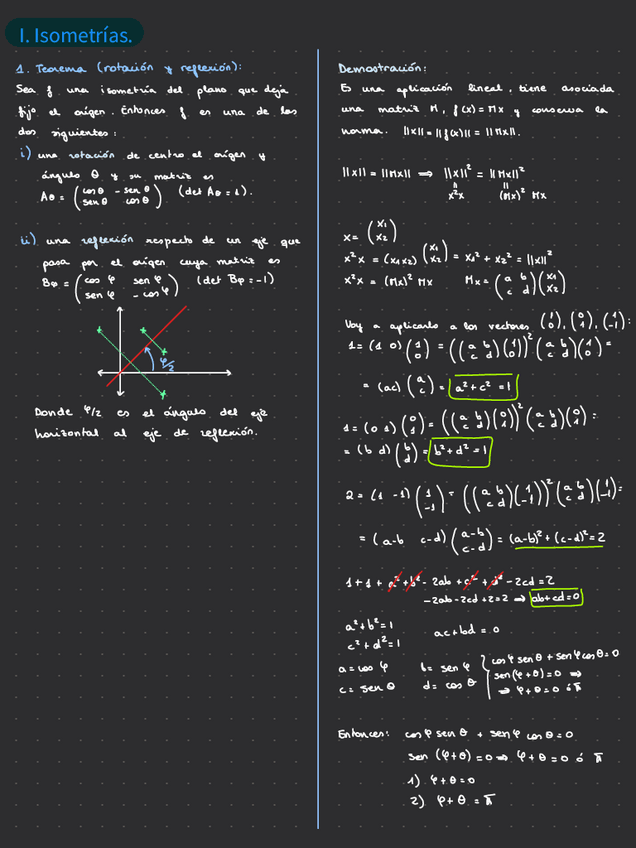 I. Isometrías.
1. Teorema (rotación y reflexión):
Sea f una isometría del plano que deja
fijo el orígen. Entonces f es una de las
dos siguientes:
i) una rotación de centro el orígen y
ángulo θ y su matriz es
Aθ = (cos θ -sen θ / sen θ cos θ) (det Aθ = 1).
ii) una reflexión respecto de un eje que
pasa por el orígen cuya matriz es
Bφ = (cos φ sen φ / sen φ -cos φ) (det Bφ = -1)
φ/2
Donde φ/2 es el ángulo del eje
horizontal al eje de reflexión.
Demostración:
Es una aplicación lineal, tiene asociada
una matriz M, f(x) = Mx y conserva la
norma. ||x|| = ||f(x)|| = ||Mx||.
||x|| = ||Mx|| ⟹ ||x||² = ||Mx||²
x²x (Mx)² Mx
x = (x₁ / x₂)
x²x = (x₁ x₂) (x₁ / x₂) = x₁² + x₂² = ||x||²
x²x = (Mx)² Mx Mx = (a b / c d)(x₁ / x₂)
Voy a aplicarlo a los vectores (1 / 0), (0 / 1), (1 / -1):
1 = (1 0)(1 / 0) = ((a b / c d)(1 / 0))² (a b / c d)(1 / 0) =
= (a c)(a / c) = a² + c² = 1
1 = (0 1)(0 / 1) = ((a b / c d)(0 / 1))² (a b / c d)(0 / 1) =
= (b d)(b / d) = b² + d² = 1
2 = (1 -1)(1 / -1) = ((a b / c d)(1 / -1))² (a b / c d)(1 / -1) =
= (a-b c-d)(a-b / c-d) = (a-b)² + (c-d)² = 2
1 + 1 + a² + b² - 2ab + c² + d² - 2cd = 2
-2ab - 2cd + 2 = 2 ⟹ ab + cd = 0
a² + b² = 1
c² + d² = 1 ac + bd = 0
a = cos φ b = sen φ cos φ sen θ + sen φ cos θ = 0
c = sen θ d = cos θ sen (φ + θ) = 0 ⟹
⟹ φ + θ = 0 ó π
Entonces: cos φ sen θ + sen φ cos θ = 0
sen (φ + θ) = 0 ⟹ φ + θ = 0 ó π
1) φ + θ = 0
2) φ + θ = π